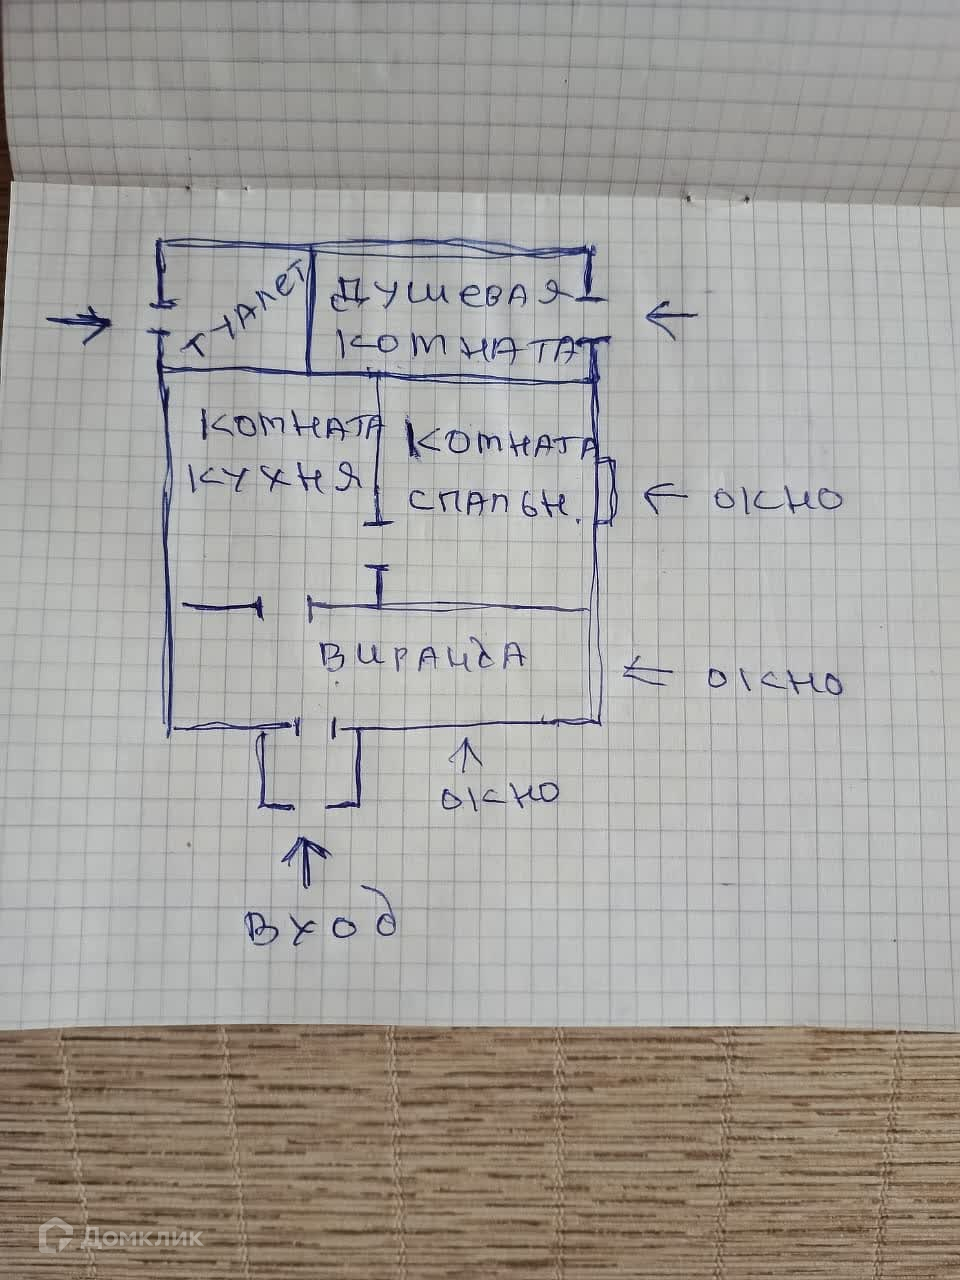 ТУАЛЕТ
ДУШЕВАЯ
КОМНАТА
КОМНАТА
КУХНЯ
КОМНАТА
СПАЛЬН.
ОКНО
ВИРАНДА
ОКНО
ОКНО
ВХОД
Домклик